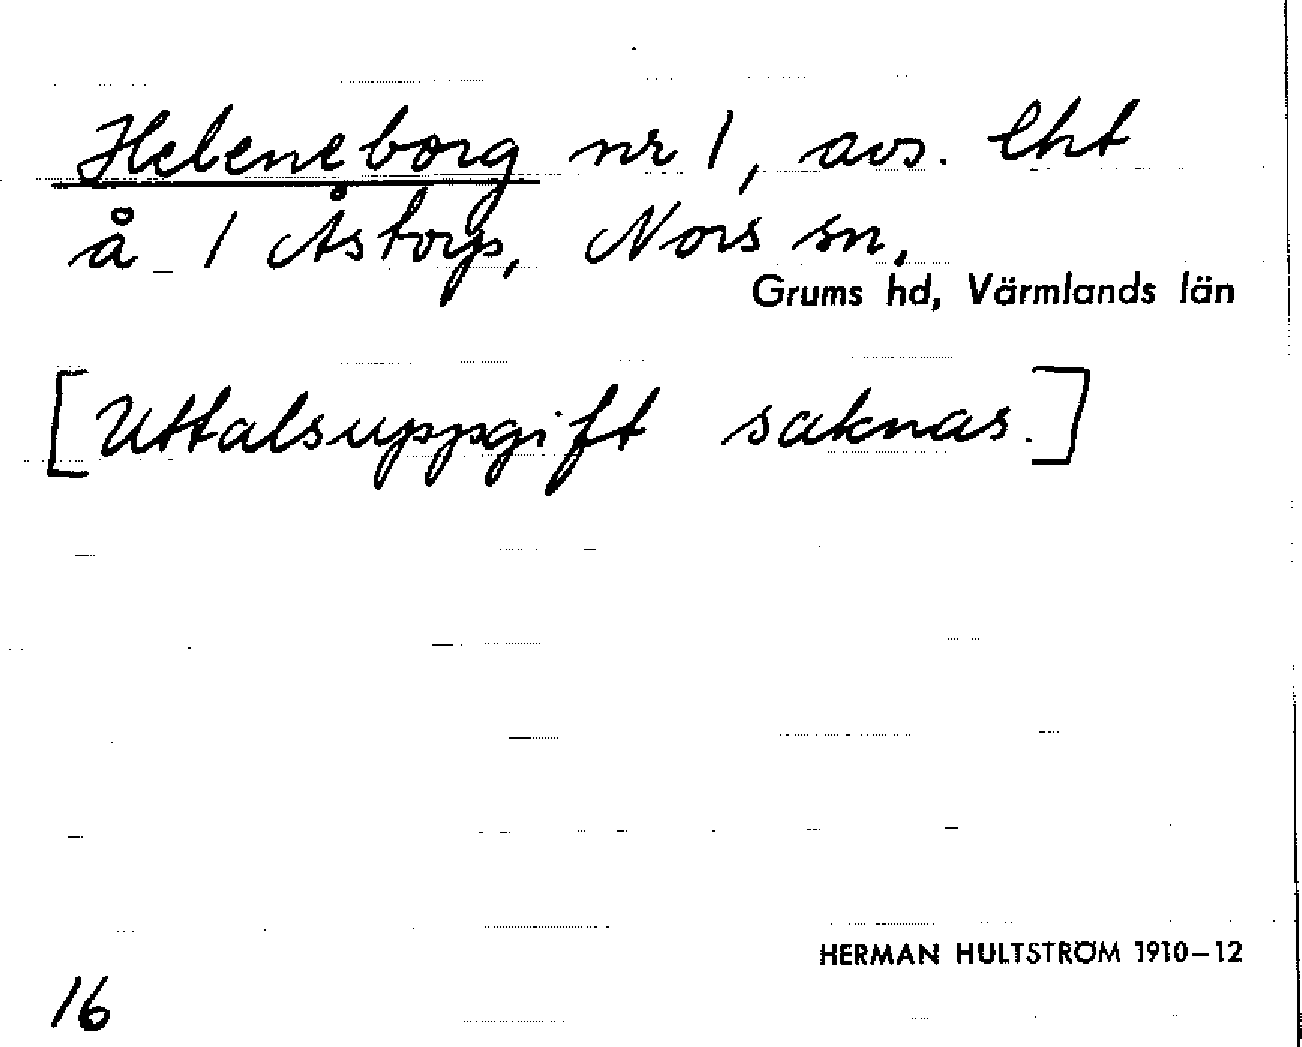 Heleneborg nr 1, avs. lht
å 1 Åstorp, Nors sn,
Grums hd, Värmlands län
[Uttalsuppgift saknas.]
HERMAN HULTSTRÖM 1910–12
16